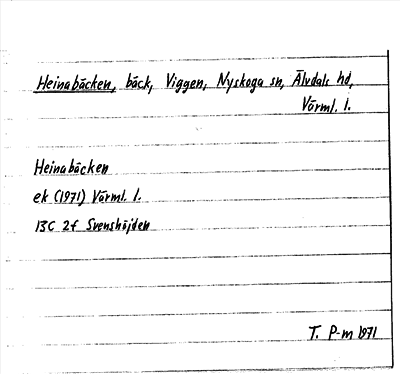 Heinabäcken, bäck, Viggen, Nyskoga sn, Älvdals hd,
Värml. l.
Heinabäcken
ek (1971) Värml. l.
13C 2f Svenshöjden
T. P-m 1971